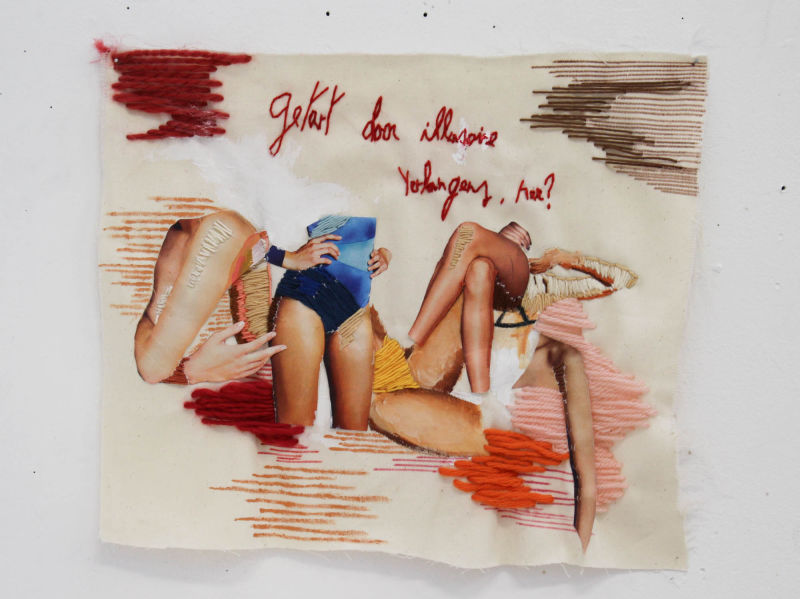 getart door illusoire
Verlangens, hee?